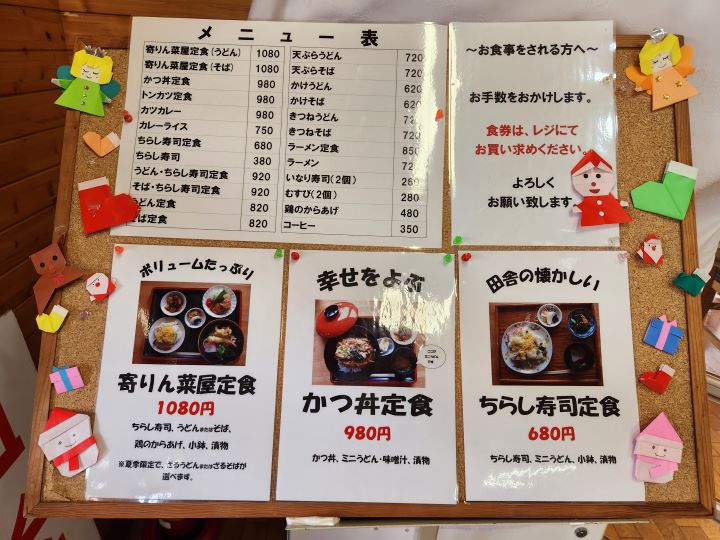 メニュー表
寄りん菜屋定食(うどん) 1080
寄りん菜屋定食(そば) 1080
かつ丼定食 980
トンカツ定食 980
カツカレー 980
カレーライス 750
ちらし寿司定食 680
ちらし寿司 380
うどん・ちらし寿司定食 920
そば・ちらし寿司定食 920
うどん定食 820
そば定食 820
天ぷらうどん 720
天ぷらそば 720
かけうどん 620
かけそば 620
きつねうどん 720
きつねそば 720
ラーメン定食 850
ラーメン
いなり寿司(2個) 280
むすび(2個) 280
鶏のからあげ 480
コーヒー 350
~お食事をされる方へ~
お手数をおかけします。
食券は、レジにて
お買い求めください。
よろしく
お願い致します
ボリュームたっぷり
寄りん菜屋定食
1080円
ちらし寿司、うどんまたはそば、
鶏のからあげ、小鉢、漬物
※夏季限定で、ざるうどんまたはざるそばが
選べます。
幸せをよぶ
かつ丼定食
980円
かつ丼、ミニうどん・味噌汁、漬物
田舎の懐かしい
ちらし寿司定食
680円
ちらし寿司、ミニうどん、小鉢、漬物